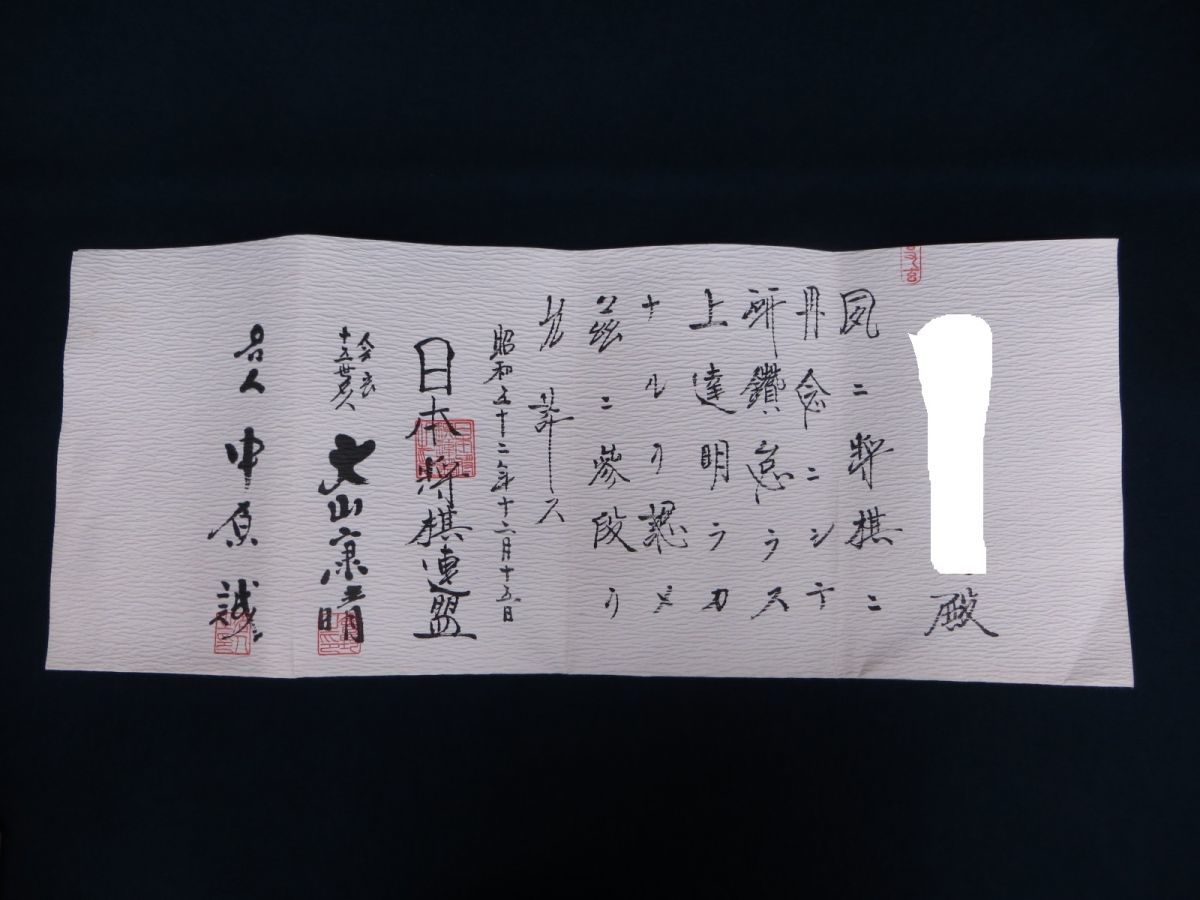 殿
夙ニ将棋ニ
丹念ニシテ
研鑽怠ラス
上達明ラカ
ナルヲ認メ
茲ニ参段ヲ
免許ス
昭和五十二年十二月十五日
日本将棋連盟
会長
十五世名人
大山康晴
名人 中原誠